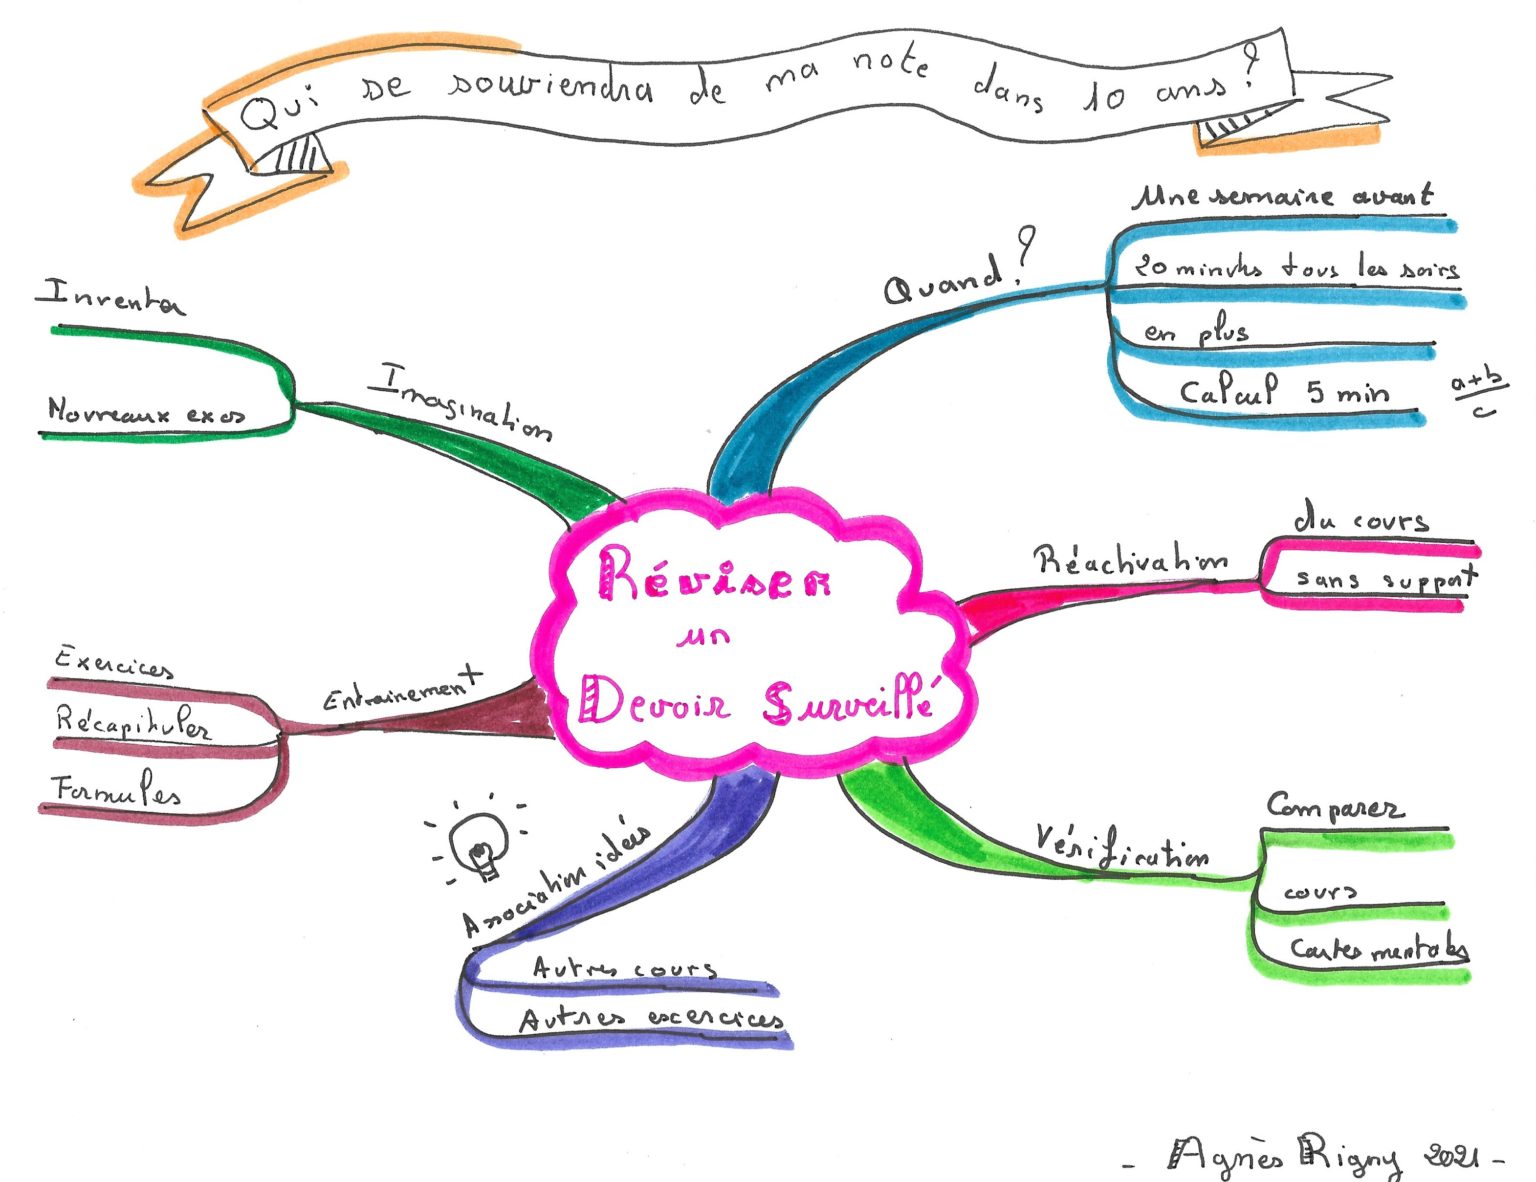 Qui se souviendra de ma note dans 10 ans ?
Quand ?
Une semaine avant
20 minutes tous les soirs
en plus
Calcul 5 min
a+b
c
Inventer
Nouveaux exos
Imagination
Réviser
un
Devoir Surveillé
Réactivation
du cours
sans support
Entrainement
Exercices
Récapituler
Formules
Association idées
Autres cours
Autres excercices
Vérification
Comparer
cours
Cartes mentales
- Agnès Rigny 2021 -